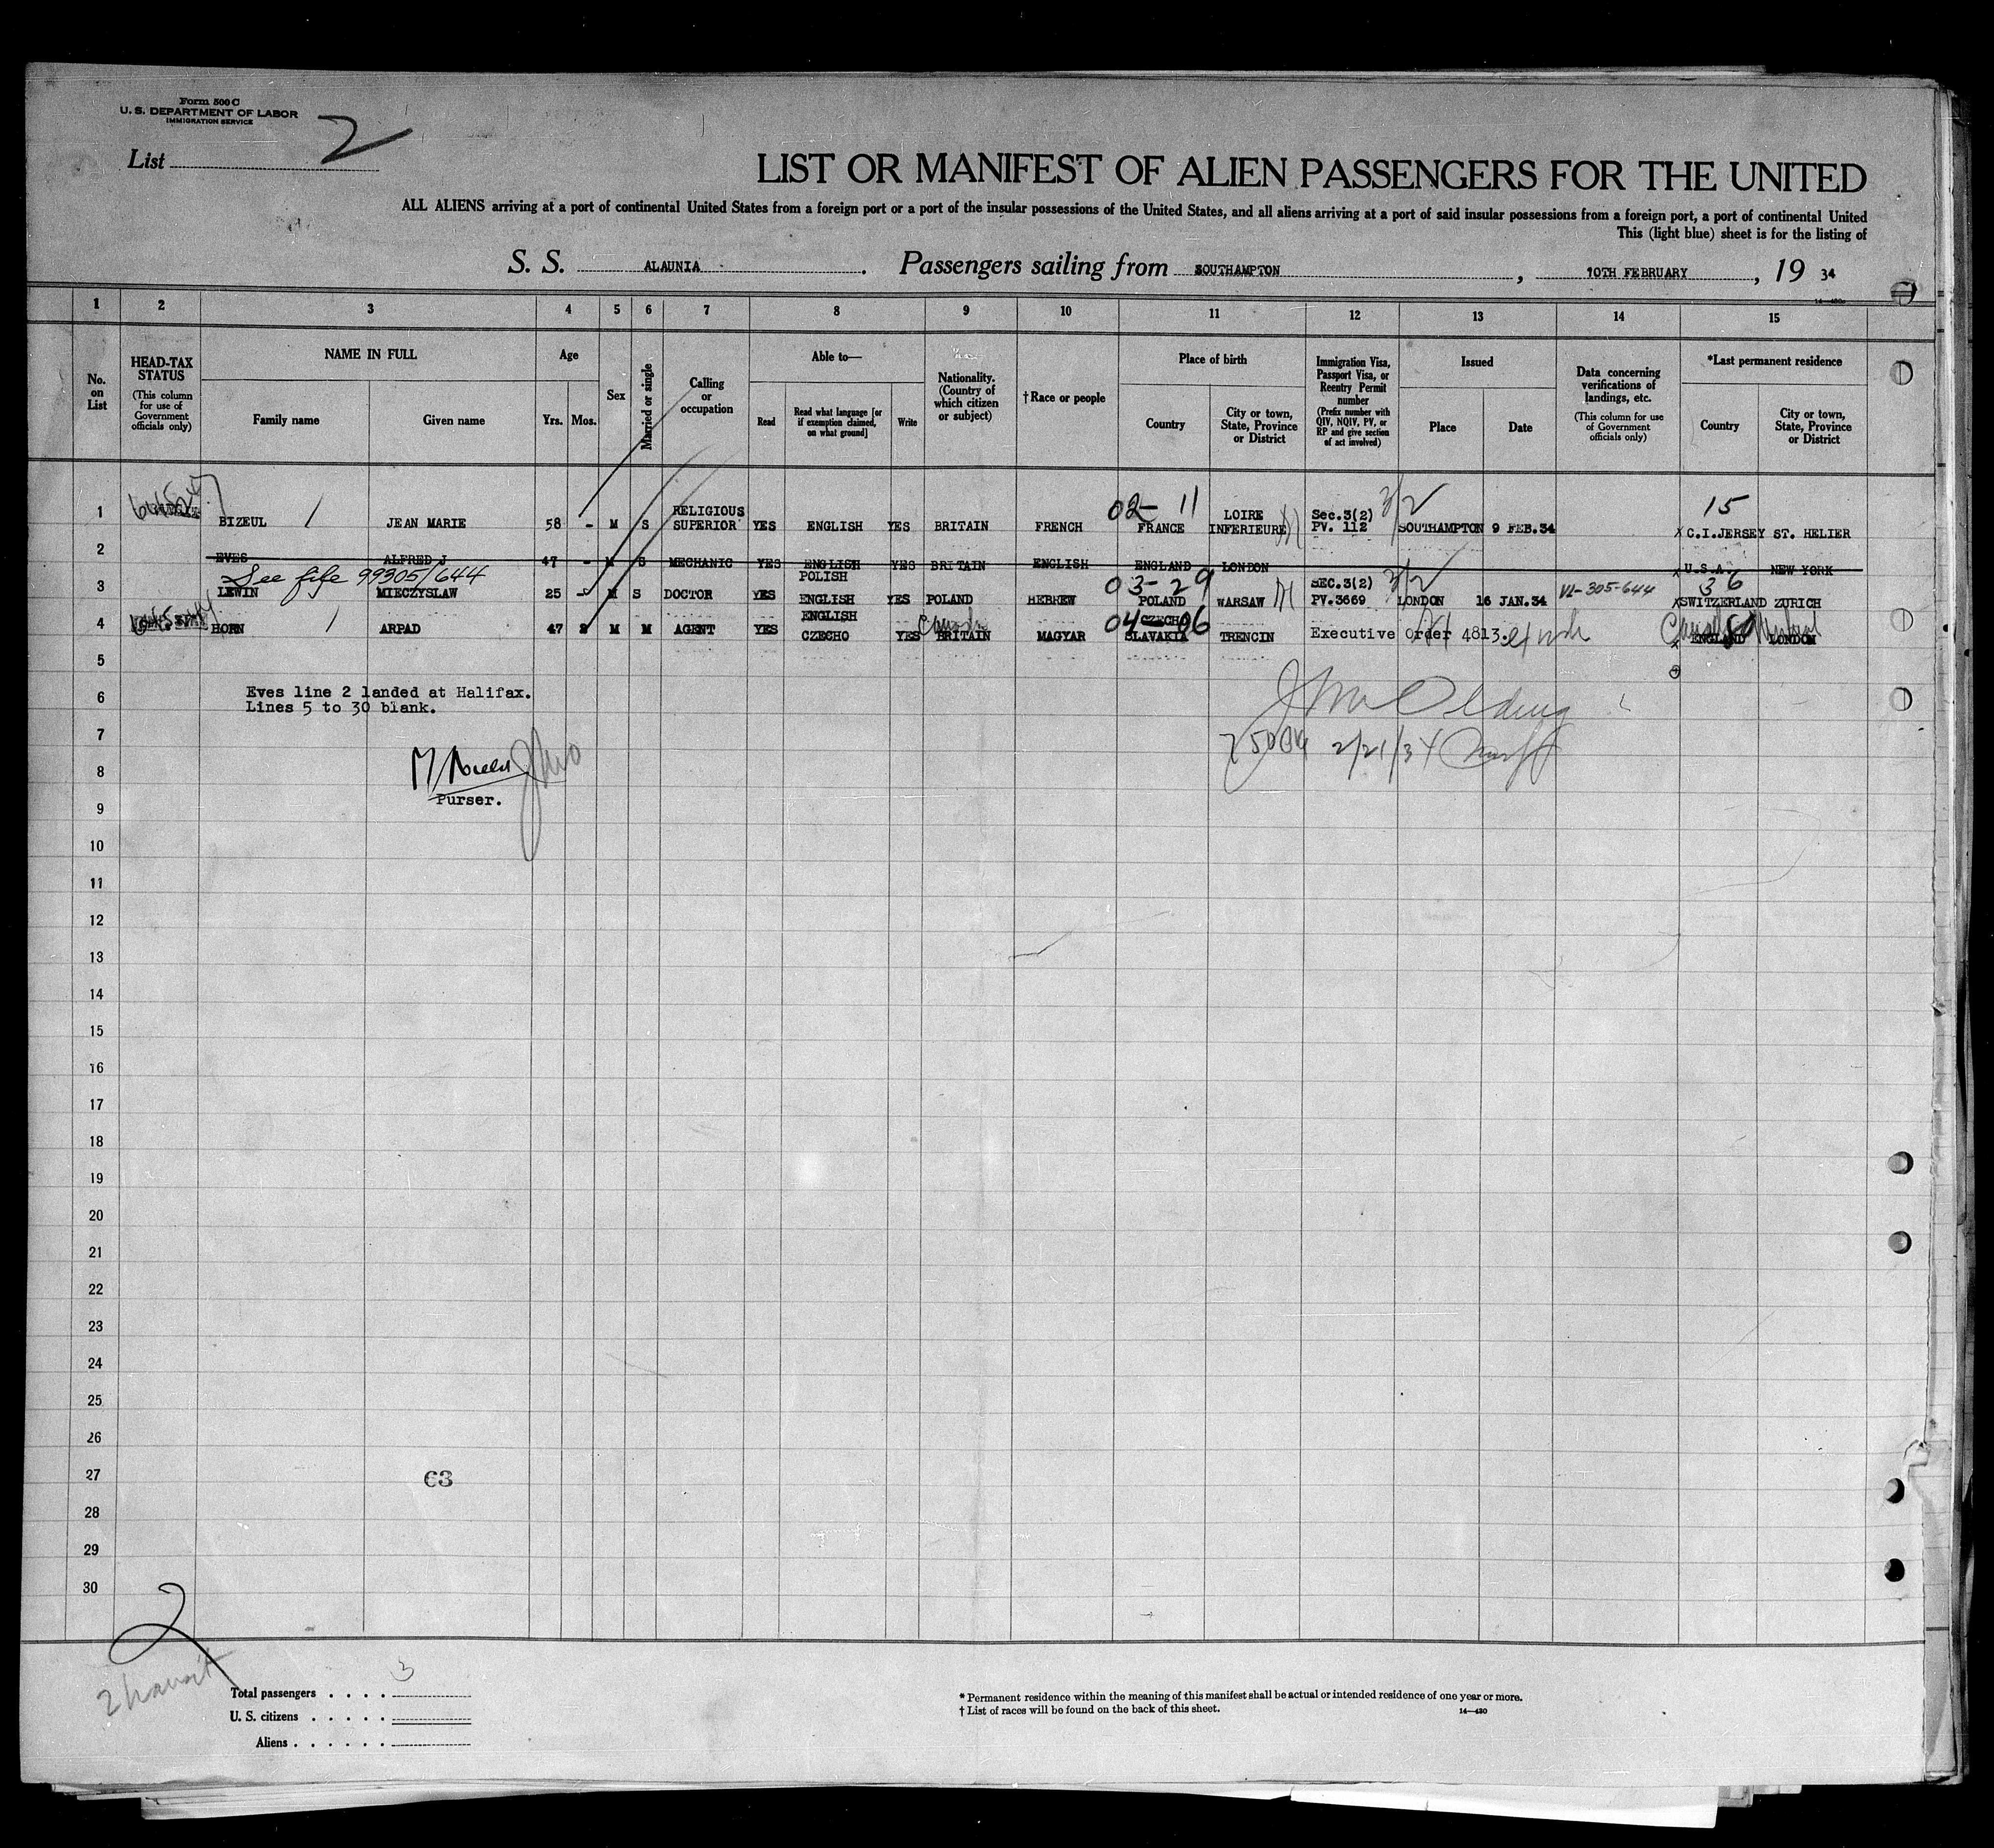 Form 500 C
U. S. DEPARTMENT OF LABOR
IMMIGRATION SERVICE
List 2
LIST OR MANIFEST OF ALIEN PASSENGERS FOR THE UNITED
ALL ALIENS arriving at a port of continental United States from a foreign port or a port of the insular possessions of the United States, and all aliens arriving at a port of said insular possessions from a foreign port, a port of continental United
This (light blue) sheet is for the listing of
S. S. ALAUNIA. Passengers sailing from SOUTHAMPTON, 10TH FEBRUARY, 19 34
1 2 3 4 5 6 7 8 9 10 11 12 13 14 15
No. on List
HEAD-TAX STATUS
(This column for use of Government officials only)
NAME IN FULL
Family name Given name
Age
Yrs. Mos.
Sex
Married or single
Calling or occupation
Able to—
Read Read what language [or if exemption claimed, on what ground] Write
Nationality. (Country of which citizen or subject)
†Race or people
Place of birth
Country City or town, State, Province or District
Immigration Visa, Passport Visa, or Reentry Permit number
(Prefix number with QIV, NQIV, PV, or RP and give section of act involved)
Issued
Place Date
Data concerning verifications of landings, etc.
(This column for use of Government officials only)
*Last permanent residence
Country City or town, State, Province or District
02-11 3/2 15
RELIGIOUS LOIRE Sec.3(2)
1 BIZEUL JEAN MARIE 58 - M S SUPERIOR YES ENGLISH YES BRITAIN FRENCH FRANCE INFERIEURE PV. 112 SOUTHAMPTON 9 FEB.34 x C.I.JERSEY ST. HELIER
2 EVES ALFRED J 47 - M S MECHANIC YES ENGLISH YES BRITAIN ENGLISH ENGLAND LONDON x U.S.A. NEW YORK
See file 99305/644 POLISH 03-29 SEC.3(2) 3/2 VL-305-644 36
3 LEWIN MIECZYSLAW 25 - M S DOCTOR YES ENGLISH YES POLAND HEBREW POLAND WARSAW PV.3669 LONDON 16 JAN.34 x SWITZERLAND ZURICH
ENGLISH 04-06 CZECHO
4 HORN ARPAD 47 2 M M AGENT YES CZECHO YES BRITAIN MAGYAR SLAVAKIA TRENCIN Executive Order 4813. x ENGLAND LONDON
5
6 Eves line 2 landed at Halifax.
Lines 5 to 30 blank.
7 2/21/34
8
Purser.
9
10
11
12
13
14
15
16
17
18
19
20
21
22
23
24
25
26
27 63
28
29
30
2
Total passengers . . . . 3
U. S. citizens . . . . .
Aliens . . . . . .
* Permanent residence within the meaning of this manifest shall be actual or intended residence of one year or more.
† List of races will be found on the back of this sheet.
14—430